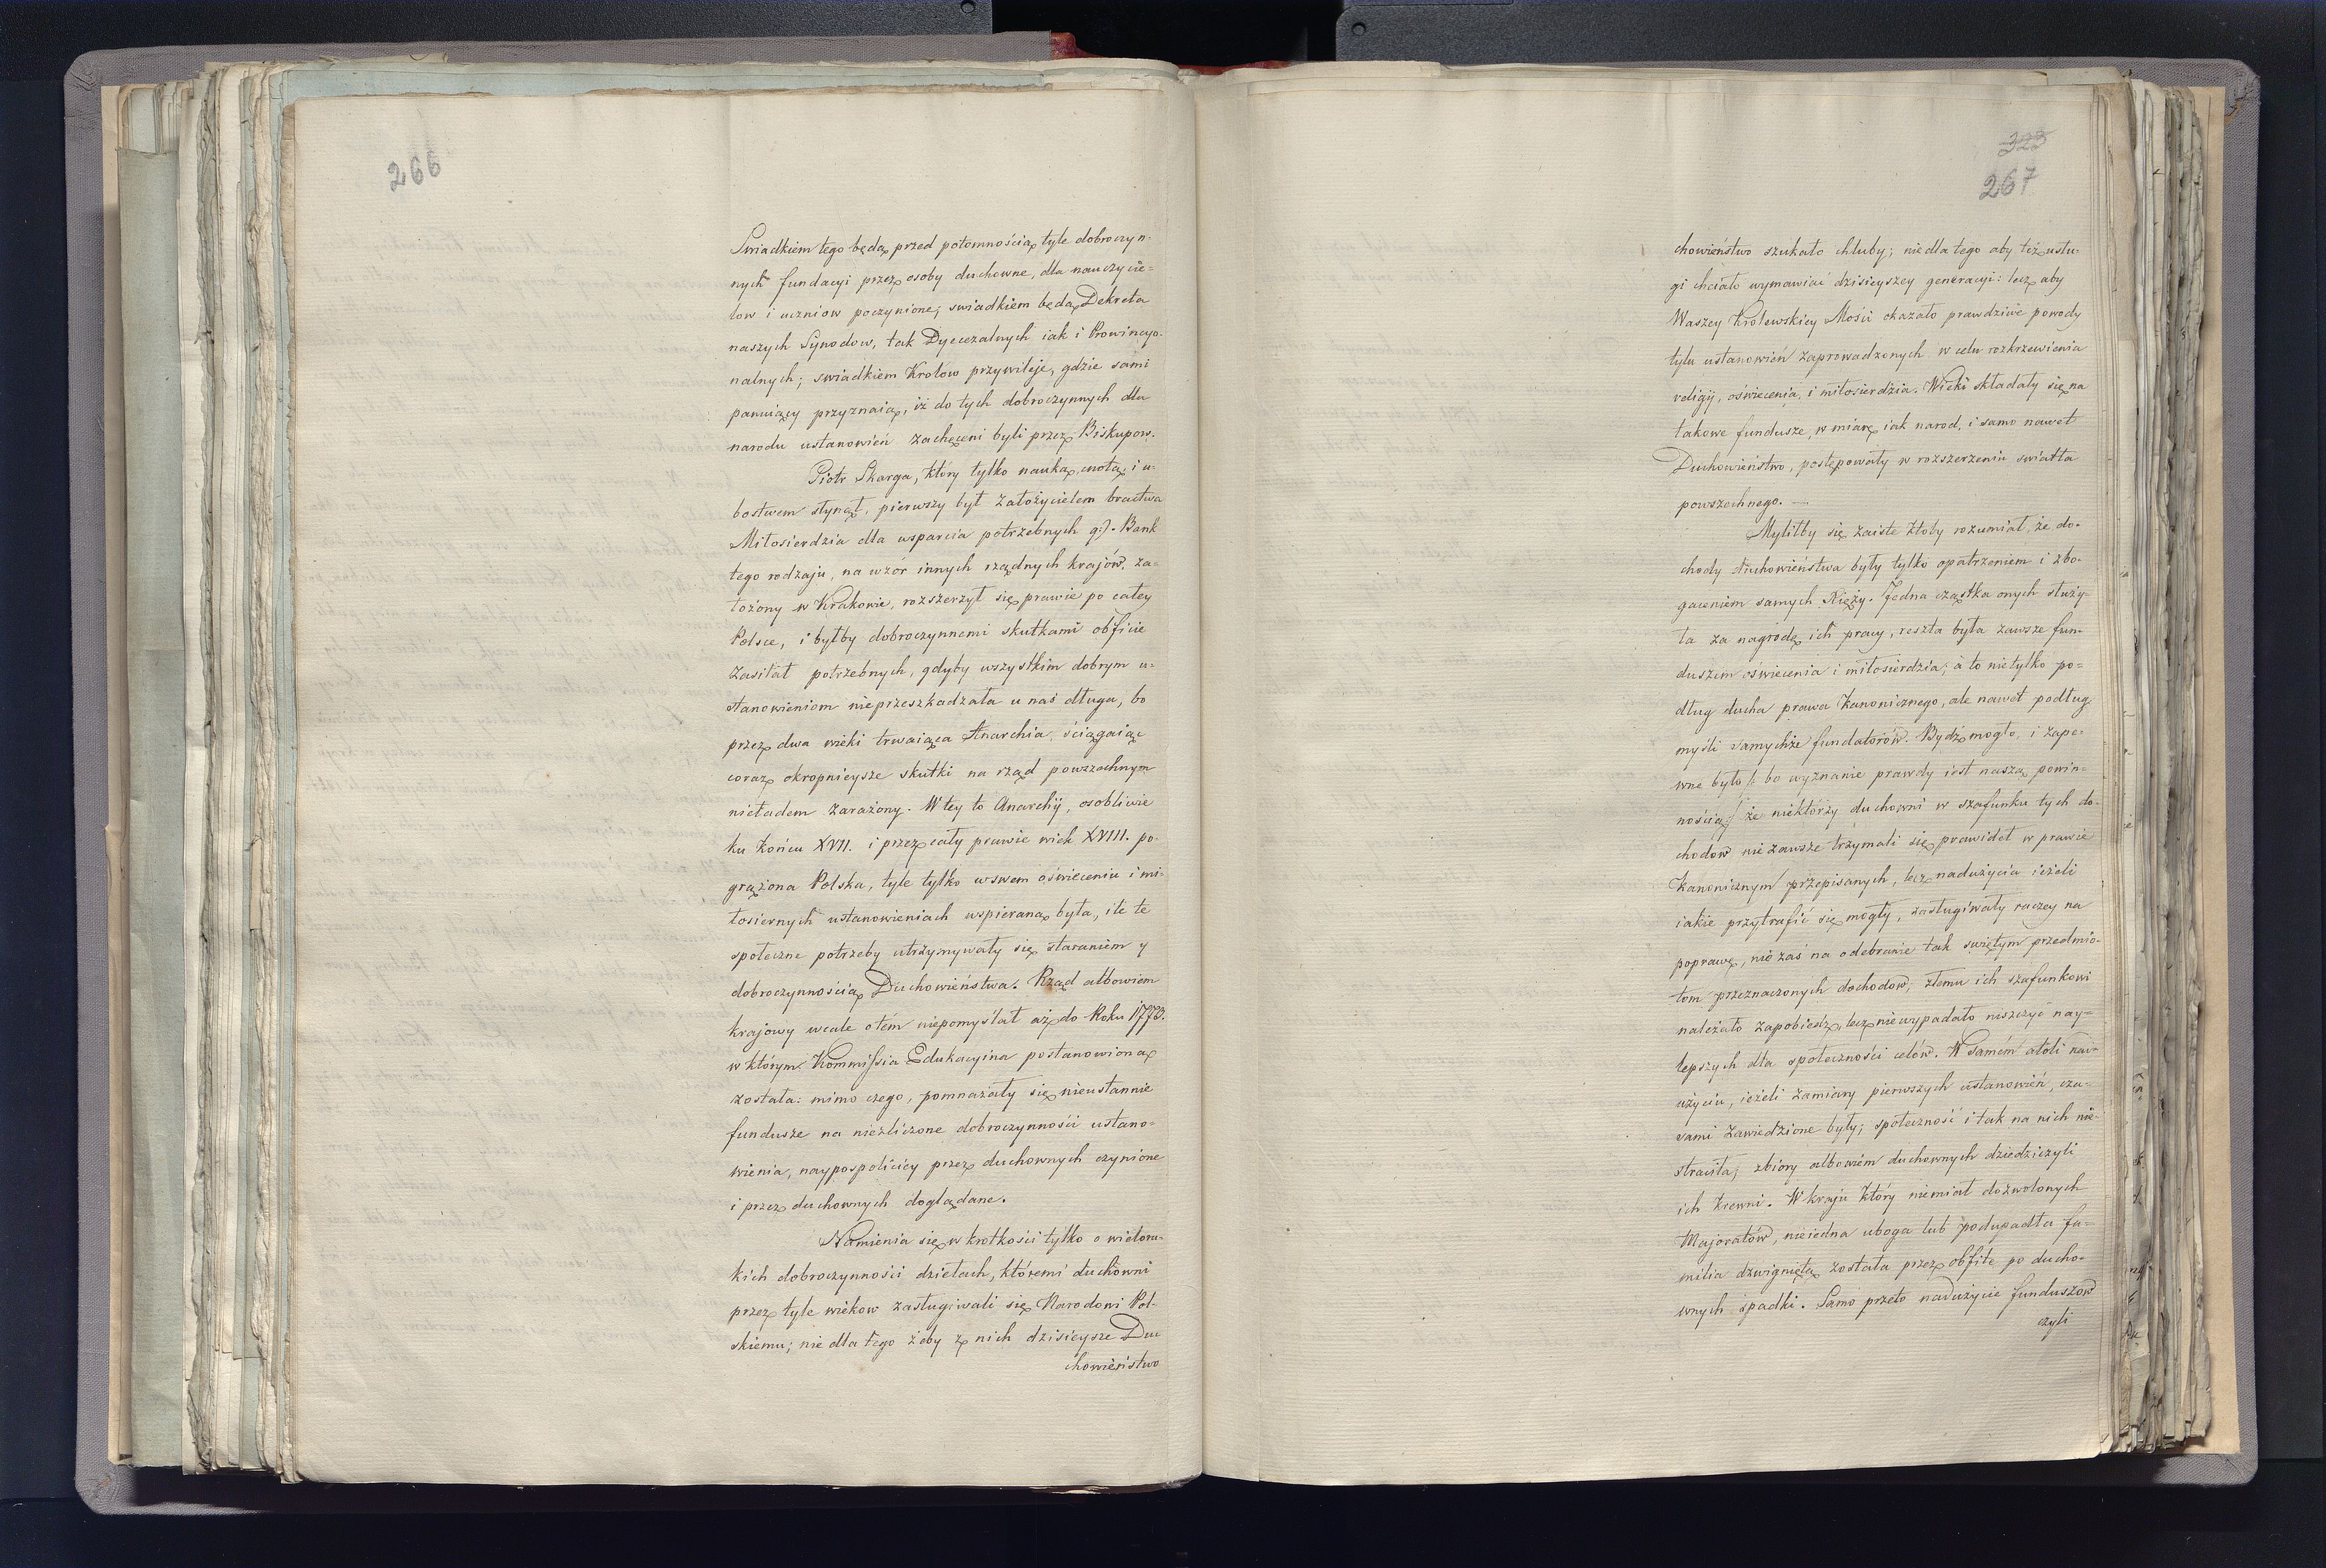 266
Swiadkiem tego będą przed potomnością tyle dobroczyn-
nych fundacyi przez osoby duchowne, dla nauczycie-
low i uczniow poczynione; swiadkiem będą Dekreta
naszych Synodow, tak Dyecezalnych iak i Prowincyo-
nalnych; swiadkiem Krolow przywileje, gdzie sami
panuiący przyznaią, iż do tych dobroczynnych dla
narodu ustanowień zachęceni byli przez Biskupow.
Piotr Skarga, który tylko nauką, cnotą, i u-
bostwem słynął, pierwszy był założycielem bractwa
Miłosierdzia dla wsparcia potrzebnych g:). Bank
tego rodzaju, na wzór innych rządnych krajów, za-
łożony w Krakowie, rozszerzył się prawie po całey
Polsce, i byłby dobroczynnemi skutkami obficie
zasilał potrzebnych, gdyby wszystkim dobrym u-
stanowieniom nieprzeszkadzała u nas długa, bo
przez dwa wieki trwaiąca Anarchia, ściągaiąc
coraz okropnieysze skutki na rząd powszechnym
nieładem zarażony. W tey to Anarchij, osobliwie
ku końcu XVII. i przez cały prawie wiek XVIII. po-
grążona Polska, tyle tylko w swem oświeceniu i mi-
łosiernych ustanowieniach wspieraną była, ile te
społeczne potrzeby utrzymywały się staraniem y
dobroczynnością Duchowieństwa. Rząd albowiem
krajowy wcale o tém niepomyślał aż do Roku 1773.
w którym Kommissia Edukacyina postanowioną
została: mimo czego, pomnażały się nieustannie
fundusze na niezliczone dobroczynności ustano-
wienia, naypospoliciey przez duchownych czynione
i przez duchownych doglądane.
Namienia się w krotkości tylko o wielora-
kich dobroczynności dziełach, któremi duchowni
przez tyle wiekow zasługiwali się Narodowi Pol-
skiemu; nie dla tego żeby z nich dzisieysze Du
chowieństwo
323
267
chowieństwo szukało chluby; nie dla tego aby też usłu-
gi chciało wymawiać dzisieyszey generacyi: lecz aby
Waszey Krolewskiey Mości okazało prawdziwe powody
tylu ustanowień zaprowadzonych w celu rozkrzewienia
religij, oświecenia, i miłosierdzia. Wieki składały się na
takowe fundusze, w miarę iak narod, i samo nawet
Duchowieństwo, postępowały w rozszerzeniu swiatła
powszechnego. —
Myliłby się zaiste ktoby rozumiał, że do-
chody duchowieństwa były tylko opatrzeniem i zbo-
gaceniem samych Xięży. Jedna cząstka onych służy-
ła za nagrodę ich pracy, reszta była zawsze fun-
duszem oświecenia i miłosierdzia; à to nietylko po-
dług ducha prawa kanonicznego, ale nawet podług
myśli samychże fundatorów. Bydź mogło, i zape-
wne było /: bo wyznanie prawdy iest naszą powin-
nością:/ że niektórzy duchowni w szafunku tych do-
chodow nie zawsze trzymali się prawideł w prawie
kanonicznym przepisanych, lecz nadużycia ieżeli
iakie przytrafić się mogły, zasługiwały raczey na
poprawę, nie zaś na odebranie tak świętym przedmio-
tom przeznaczonych dochodow; złemu ich szafunkowi
należało zapobiedz, lecz niewypadało niszczyć nay-
lepszych dla społeczności celów. W samém atoli nad-
użyciu, ieżeli zamiary pierwszych ustanowień, cza-
sami zawiedzione były; społeczność i tak na nich nie-
straciła; zbiory albowiem duchownych dziedziczyli
ich krewni. W kraju który niemiał dozwolonych
Majoratów, nieiedna uboga lub podupadła fa-
milia dzwignięta została przez obfite po ducho-
wnych spadki. Samo przeto nadużycie funduszow
czyli